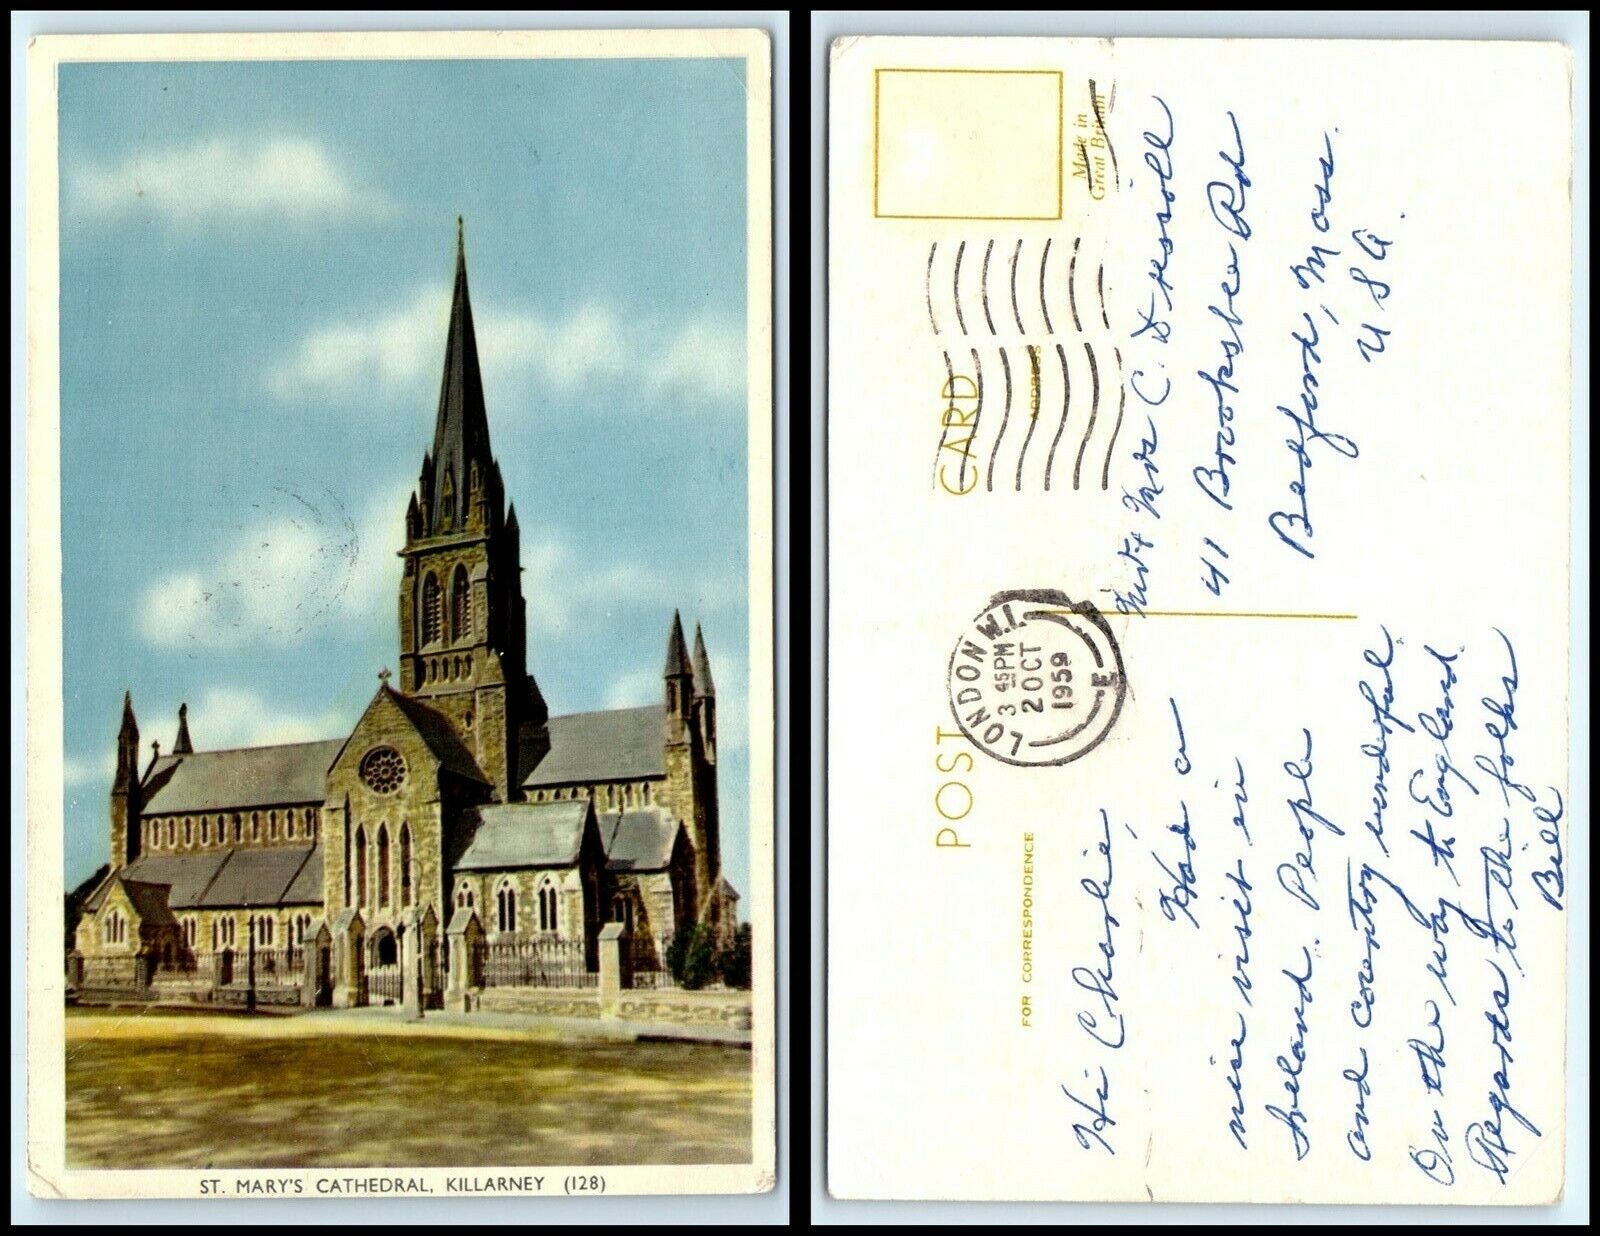 ST. MARY'S CATHEDRAL, KILLARNEY (128)
POST CARD
FOR CORRESPONDENCE
ADDRESS
Made in
Great Britain
LONDON W.1.
3 45PM
2 OCT
1959
E
Hi Charlie,
Had a
nice visit in
Ireland. People
and country wonderful.
On the way to England.
Regards to the folks
Bill
Mr & Mrs C.
41 Brooksbee Rd
Bedford, Mass.
USA.